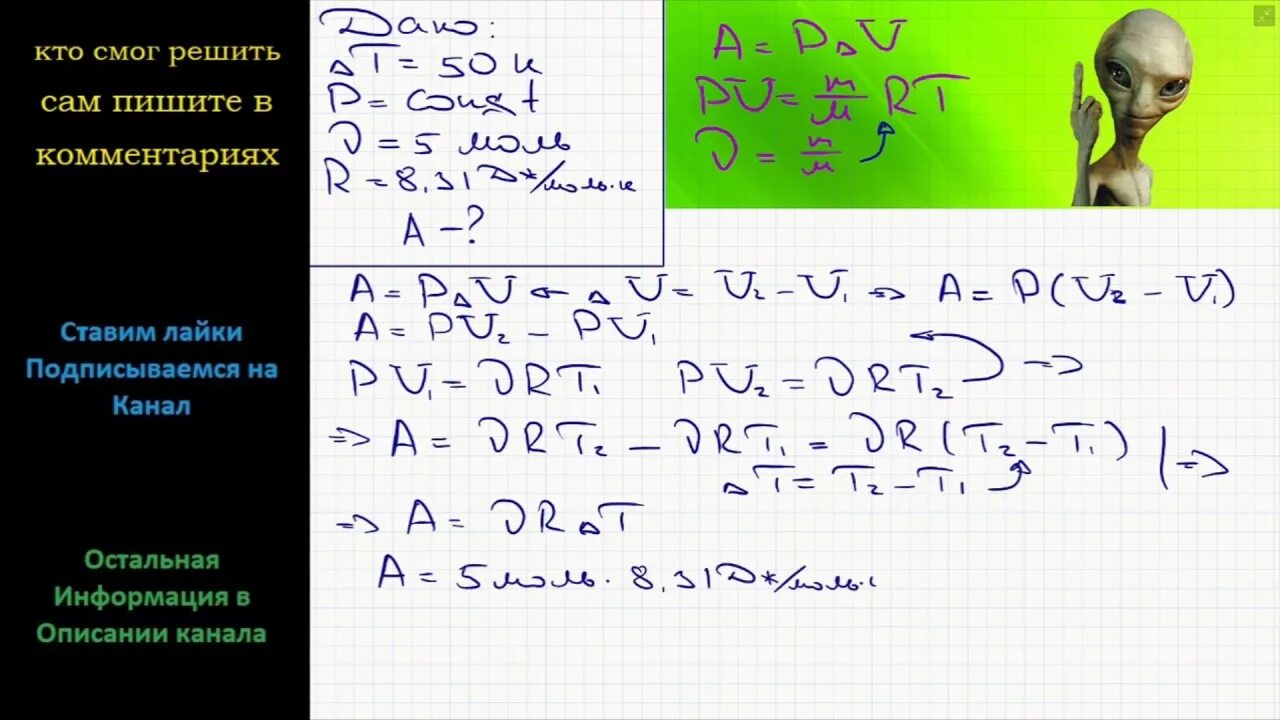 кто смог решить
сам пишите в
комментариях
Ставим лайки
Подписываемся на
Канал
Остальная
Информация в
Описании канала
Дано:
ΔT = 50 К
P = const
ν = 5 моль
R = 8,31 Дж/моль·К
A – ?
A = PΔV
PV = m/M RT
ν = m/M
A = PΔV ← ΔV = V₂ – V₁ ⇒ A = P(V₂ – V₁)
A = PV₂ – PV₁
PV₁ = νRT₁ PV₂ = νRT₂ ⇒
⇒ A = νRT₂ – νRT₁ = νR(T₂ – T₁) | ⇒
ΔT = T₂ – T₁
⇒ A = νRΔT
A = 5 моль · 8,31 Дж/моль·